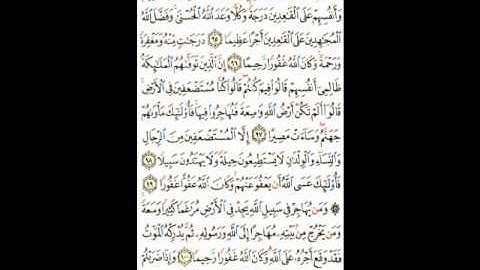 وَأَنفُسِهِمْ عَلَى الْقَٰعِدِينَ دَرَجَةً وَكُلًّا وَعَدَ اللَّهُ الْحُسْنَىٰ وَفَضَّلَ اللَّهُ
الْمُجَٰهِدِينَ عَلَى الْقَٰعِدِينَ أَجْرًا عَظِيمًا ٩٥ دَرَجَٰتٍ مِّنْهُ وَمَغْفِرَةً
وَرَحْمَةً وَكَانَ اللَّهُ غَفُورًا رَّحِيمًا ٩٦ إِنَّ الَّذِينَ تَوَفَّىٰهُمُ الْمَلَٰٓئِكَةُ
ظَالِمِىٓ أَنفُسِهِمْ قَالُوا۟ فِيمَ كُنتُمْ قَالُوا۟ كُنَّا مُسْتَضْعَفِينَ فِى الْأَرْضِ
قَالُوٓا۟ أَلَمْ تَكُنْ أَرْضُ اللَّهِ وَٰسِعَةً فَتُهَاجِرُوا۟ فِيهَا فَأُو۟لَٰٓئِكَ مَأْوَىٰهُمْ
جَهَنَّمُ وَسَآءَتْ مَصِيرًا ٩٧ إِلَّا الْمُسْتَضْعَفِينَ مِنَ الرِّجَالِ
وَالنِّسَآءِ وَالْوِلْدَٰنِ لَا يَسْتَطِيعُونَ حِيلَةً وَلَا يَهْتَدُونَ سَبِيلًا ٩٨
فَأُو۟لَٰٓئِكَ عَسَى اللَّهُ أَن يَعْفُوَ عَنْهُمْ وَكَانَ اللَّهُ عَفُوًّا غَفُورًا ٩٩
۞ وَمَن يُهَاجِرْ فِى سَبِيلِ اللَّهِ يَجِدْ فِى الْأَرْضِ مُرَٰغَمًا كَثِيرًا وَسَعَةً
وَمَن يَخْرُجْ مِنۢ بَيْتِهِۦ مُهَاجِرًا إِلَى اللَّهِ وَرَسُولِهِۦ ثُمَّ يُدْرِكْهُ الْمَوْتُ
فَقَدْ وَقَعَ أَجْرُهُۥ عَلَى اللَّهِ وَكَانَ اللَّهُ غَفُورًا رَّحِيمًا ١٠٠ وَإِذَا ضَرَبْتُمْ